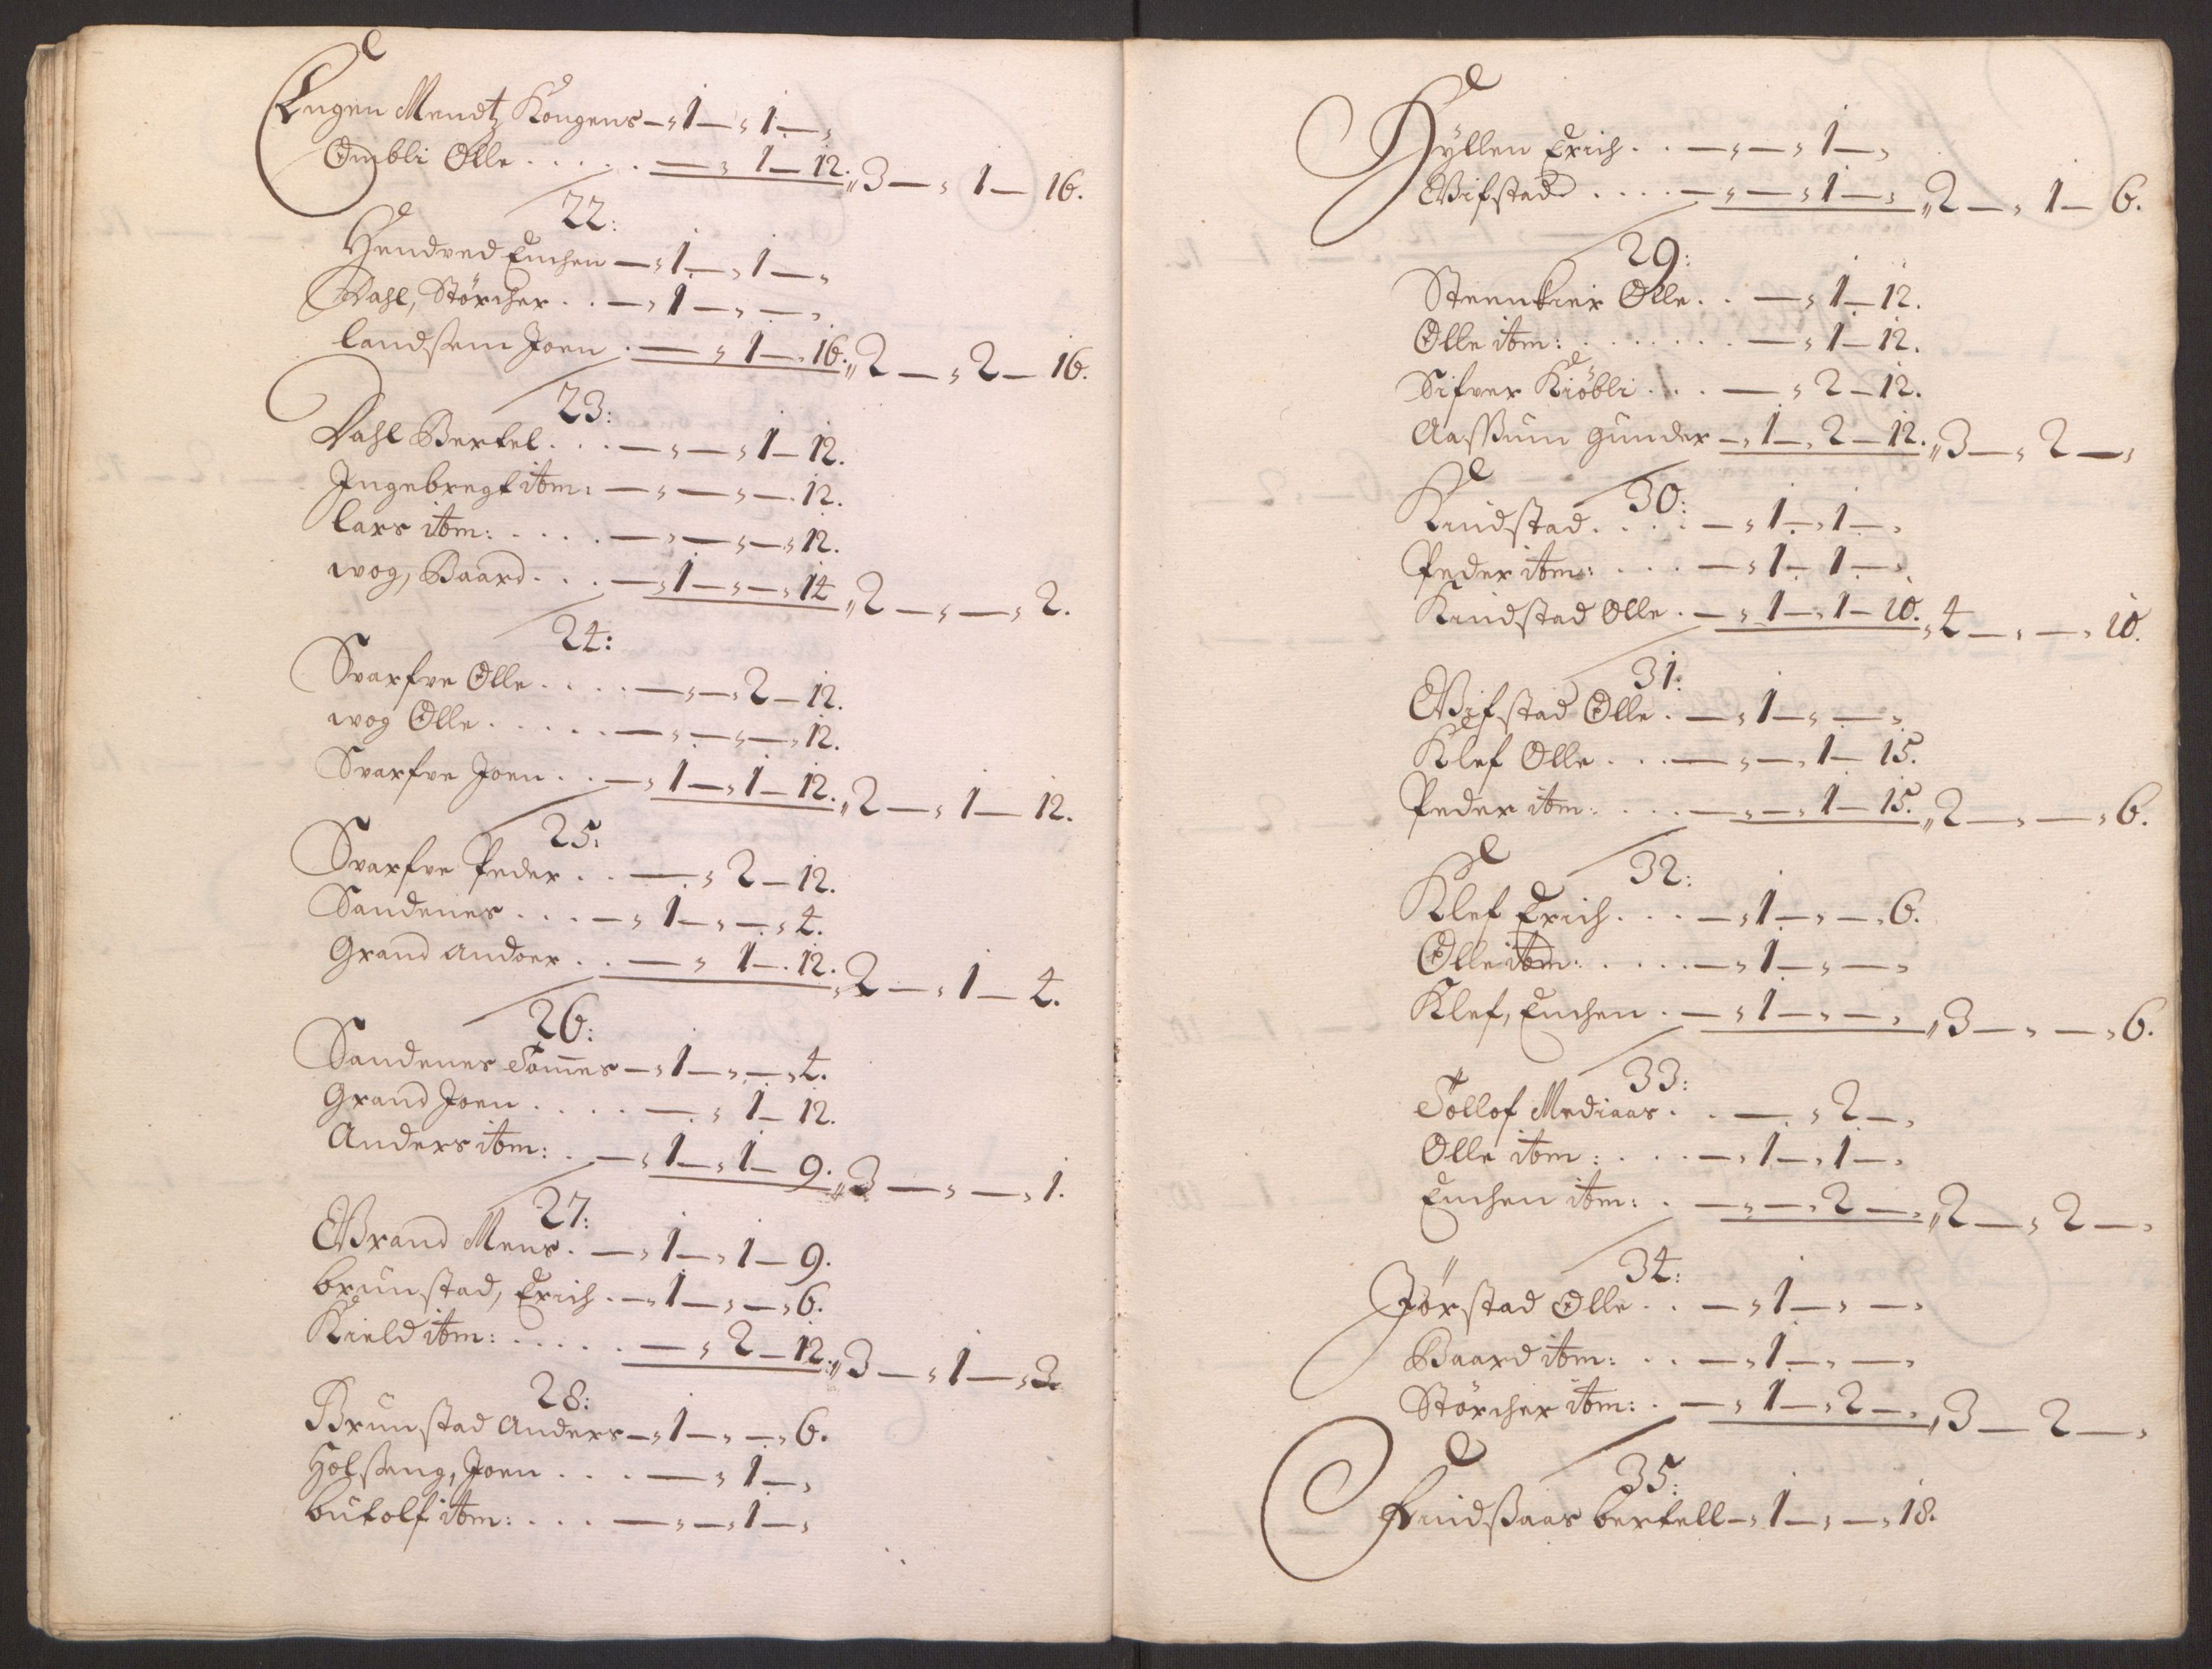 Lugen Mendtz Kongens — „ 1 — „ 1 — „
Ombli Olle . . . . . — „ 1 — 12. „ 3 — „ 1 — 16.
22:
Hendved Enchen — „ 1 — „ 1 — „
Dahl, Störcher . . — „ 1 — „ — „
landsem Joen . — „ 1 — 16. „ 2 — „ 2 — 16.
23:
Dahl Bertel . . . — „ — „ 1 — 12.
Ingebregt itm: — „ — „ — 12.
Lars itm: . . . . . — „ — „ — „ 12.
wog, Baard . . . — „ 1 — „ — „ 14 „ 2 — „ — „ 2.
24:
Svarfve Olle . . . . — „ — „ 2 — 12.
wog Olle . . . . . — „ — „ — „ 12.
Svarfve Joen . . — „ 1 — „ 1 — 12. „ 2 — „ 1 — 12.
25:
Svarfve Peder . . — „ 2 — 12.
Sandenes . . . . — „ 1 — „ — „ 4.
Grand Andoer . . — „ 1 — 12. „ 2 — „ 1 — 4.
26:
Sandenes Tommes — „ 1 — „ — „ 4.
Grand Joen . . . . . — „ 1 — 12.
Anders itm: . — „ 1 — „ 1 — 9. „ 3 — „ — „ 1.
27:
Grand Mens . — „ 1 — „ 1 — 9.
brünstad, Erich . — „ 1 — „ — „ 6.
Kield itm: . . . . . — „ 2 — 12. „ 3 — „ 1 — „ 3
28:
Brünstad Anders — „ 1 — „ — „ 6.
Holseng, Joen . . . — „ 1 — „
bütolf itm: . . . — „ — „ 1 — „
Hÿllen Erich . . — „ — „ 1 — „
Vifstad . . . . — „ — „ 1 — „ „ 2 — „ 1 — 6.
29:
Steenkier Olle . . — „ 1 — 12.
Olle itm: . . . . . . . — „ 1 — 12.
Sifver Kiöbli . . . — „ 2 — 12.
Aassum gunder — „ 1 — „ 2 — 12. „ 3 — „ 2 — „
30:
Kindstad . . . . — „ 1 — „ 1 — „
Peder itm: . . . . — „ 1 — 1 — „
Kindstad Olle . — „ 1 — „ 1 — 10. „ 4 — „ — „ 10.
31:
Vifstad Olle . — „ 1 — „ — „
Klef Olle . . . — „ — „ 1 — 15.
Peder itm: . . . — „ — „ 1 — 15. „ 2 — „ — „ 6.
32:
Klef Erich . . . — „ 1 — „ — „ 6.
Olle itm: . . . . . — „ 1 — „ — „
Klef, Enchen . — „ 1 — „ — „ „ 3 — „ — „ 6.
33:
Töllof Mediaas . . — „ 2 — „
Olle itm: . . . — „ 1 — „ 1 — „
Enchen itm: . — „ — „ 2 — „ „ 2 — „ 2 — „
34:
Jörstad Olle . . — „ 1 — „ — „
Baard itm: . . — „ 1 — „ — „
Störcher itm: . — „ 1 — „ 2 — „ „ 3 — 2 — „
35:
bertell — „ 1 — „ — „ 18.